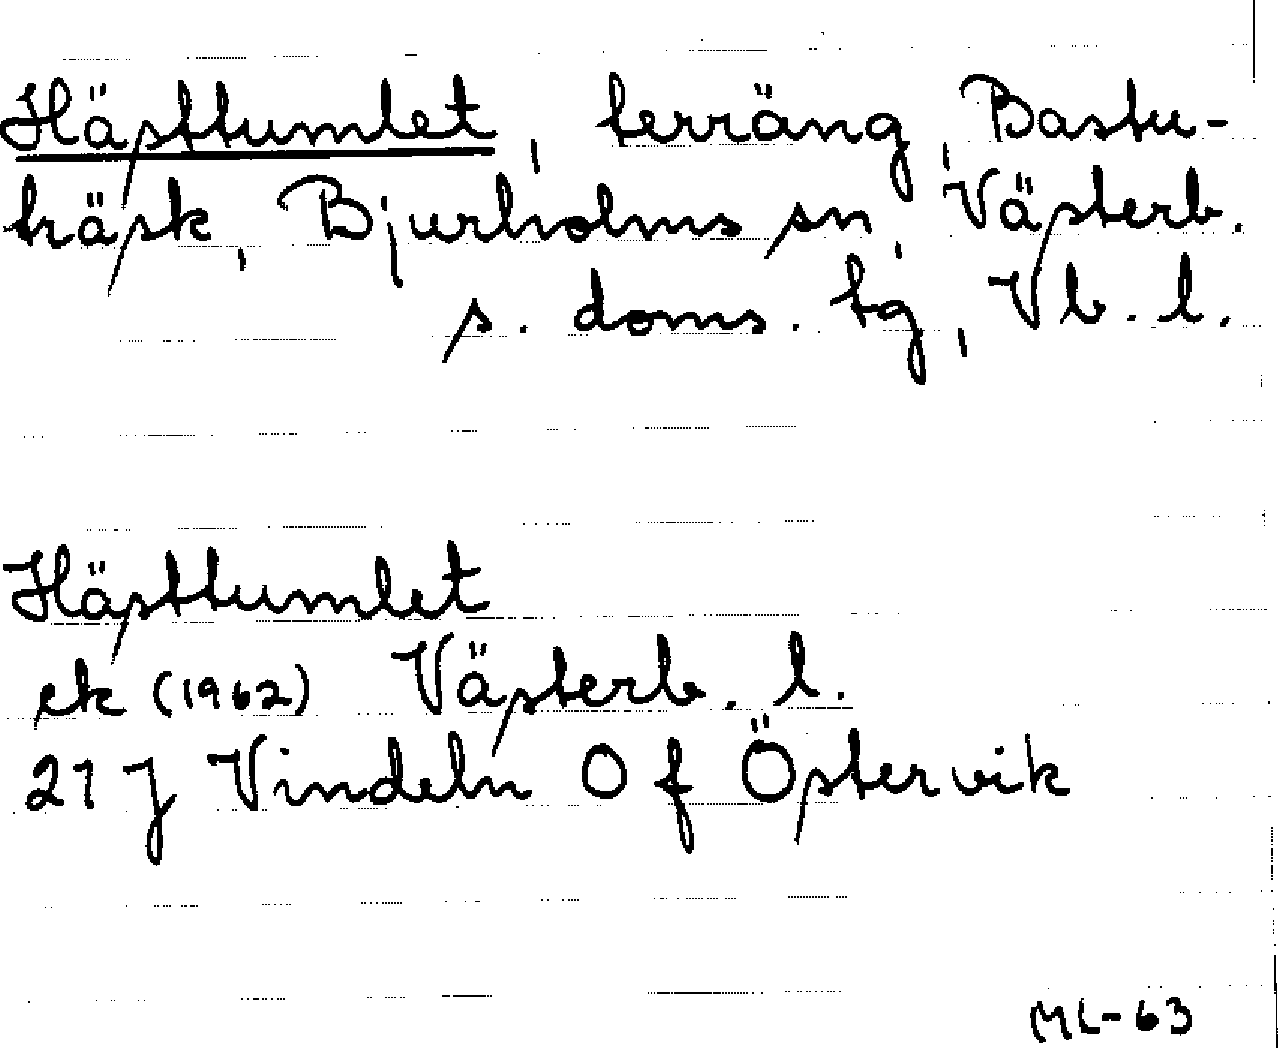 Hästtumlet, terräng, Bastu-
träsk, Bjurholms sn, Västerb.
s. doms. tg, Vb. l.
Hästtumlet
ek (1962) Västerb. l.
21 J Vindeln 0 f Östervik
ML-63